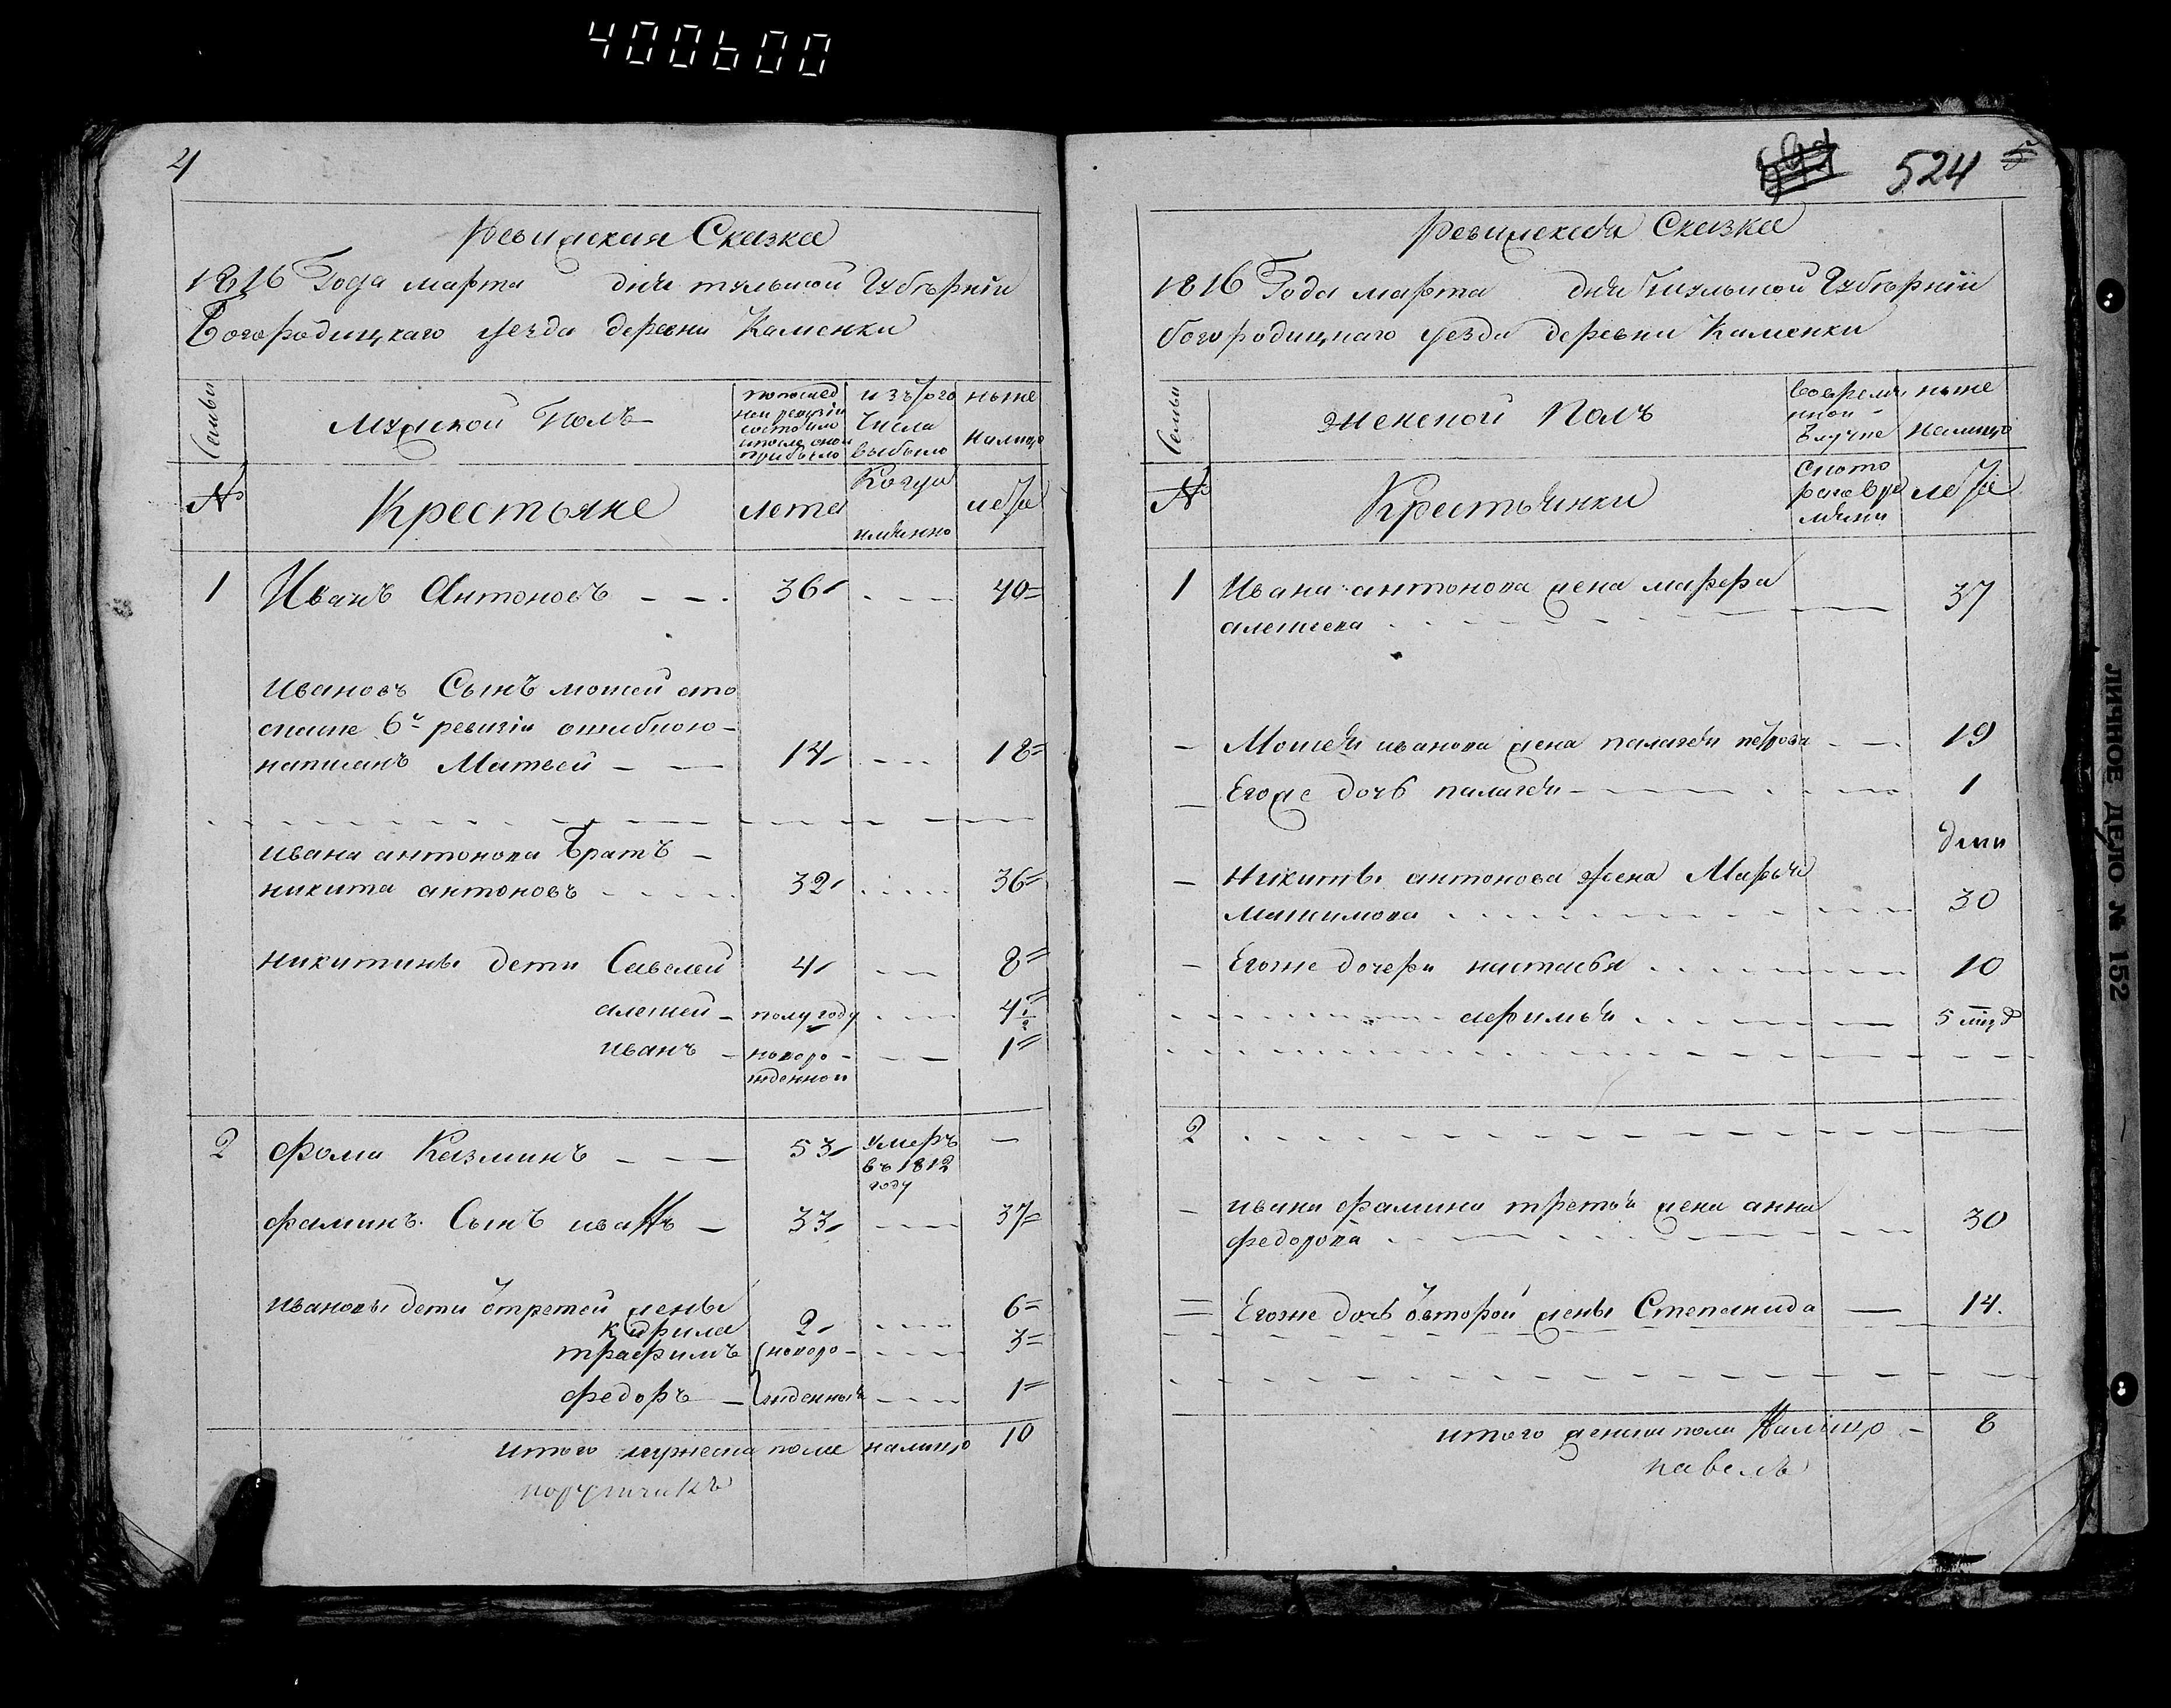 400600
4
Ревижская Сказка
1816 Года марта дня тульской Губернiи
Богородицкаго уезда деревни Каменки
Семьи
Мужской Полъ
по послед
ней ревизiи
состояло
и после оной
прибыло
изъ того
числа
выбыло
ныне
налицо
№
Крестьяне
лета
Когда
имянно
лета
1 Иванъ Антоновъ 36 40
Ивановъ Сынъ мосей что
6й ревизiи ошибкою
написанъ Матвей 14 18
ивана антонова братъ
никита антоновъ 32 36
никитины дети Савелей 4 8
алексей полугоду 4 1/2
иванъ новоро 1
жденной
2 фома Казминъ 53 умеръ
въ 1812
году
фаминъ Сынъ иванъ 33 37
ивановы дети от третей жены
кирила 2 6
трафимъ новоро 3
федоръ жденныя 1
итого мужеска пола налицо 10
порутчикъ
524
Ревижская Сказка
1816 Года марта дня тульской Губернiи
богородицкаго уезда деревни Каменки
Семьи
женской Полъ
во времян
ной
отлучке
ныне
налицо
№
Крестьянки
с кото
рага вре
мяни
лета
1 Ивана антонова жена марфа
алексева 37
Мосея иванова жена палагея петрова 19
Егоже дочь палагея 1
Никиты антонова жена Марья
Максимова 30
Егоже дочери настасья 10
афимья 5
2
ивана фамина третья жена анна
федорова 30
Егоже дочь от второй жены Степанида 14.
итого женска пола Налицо 8
павелъ
ЛИЧНОЕ ДЕЛО № 152